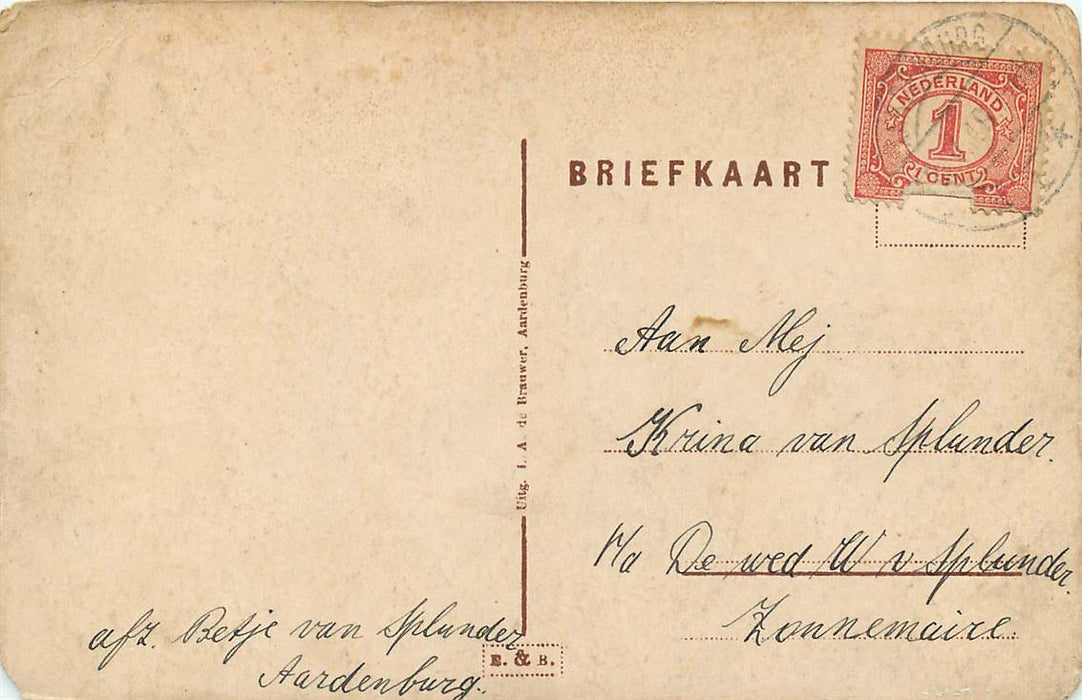 BRIEFKAART
NEDERLAND
1
1 CENT
BURG
Aan Mej
Krina van Splunder.
p/a De wed W v Splunder.
Zonnemaire.
Uitg. I. A. de Brauwer, Aardenburg
afz. Betje van Splunder
Aardenburg.
E. & B.